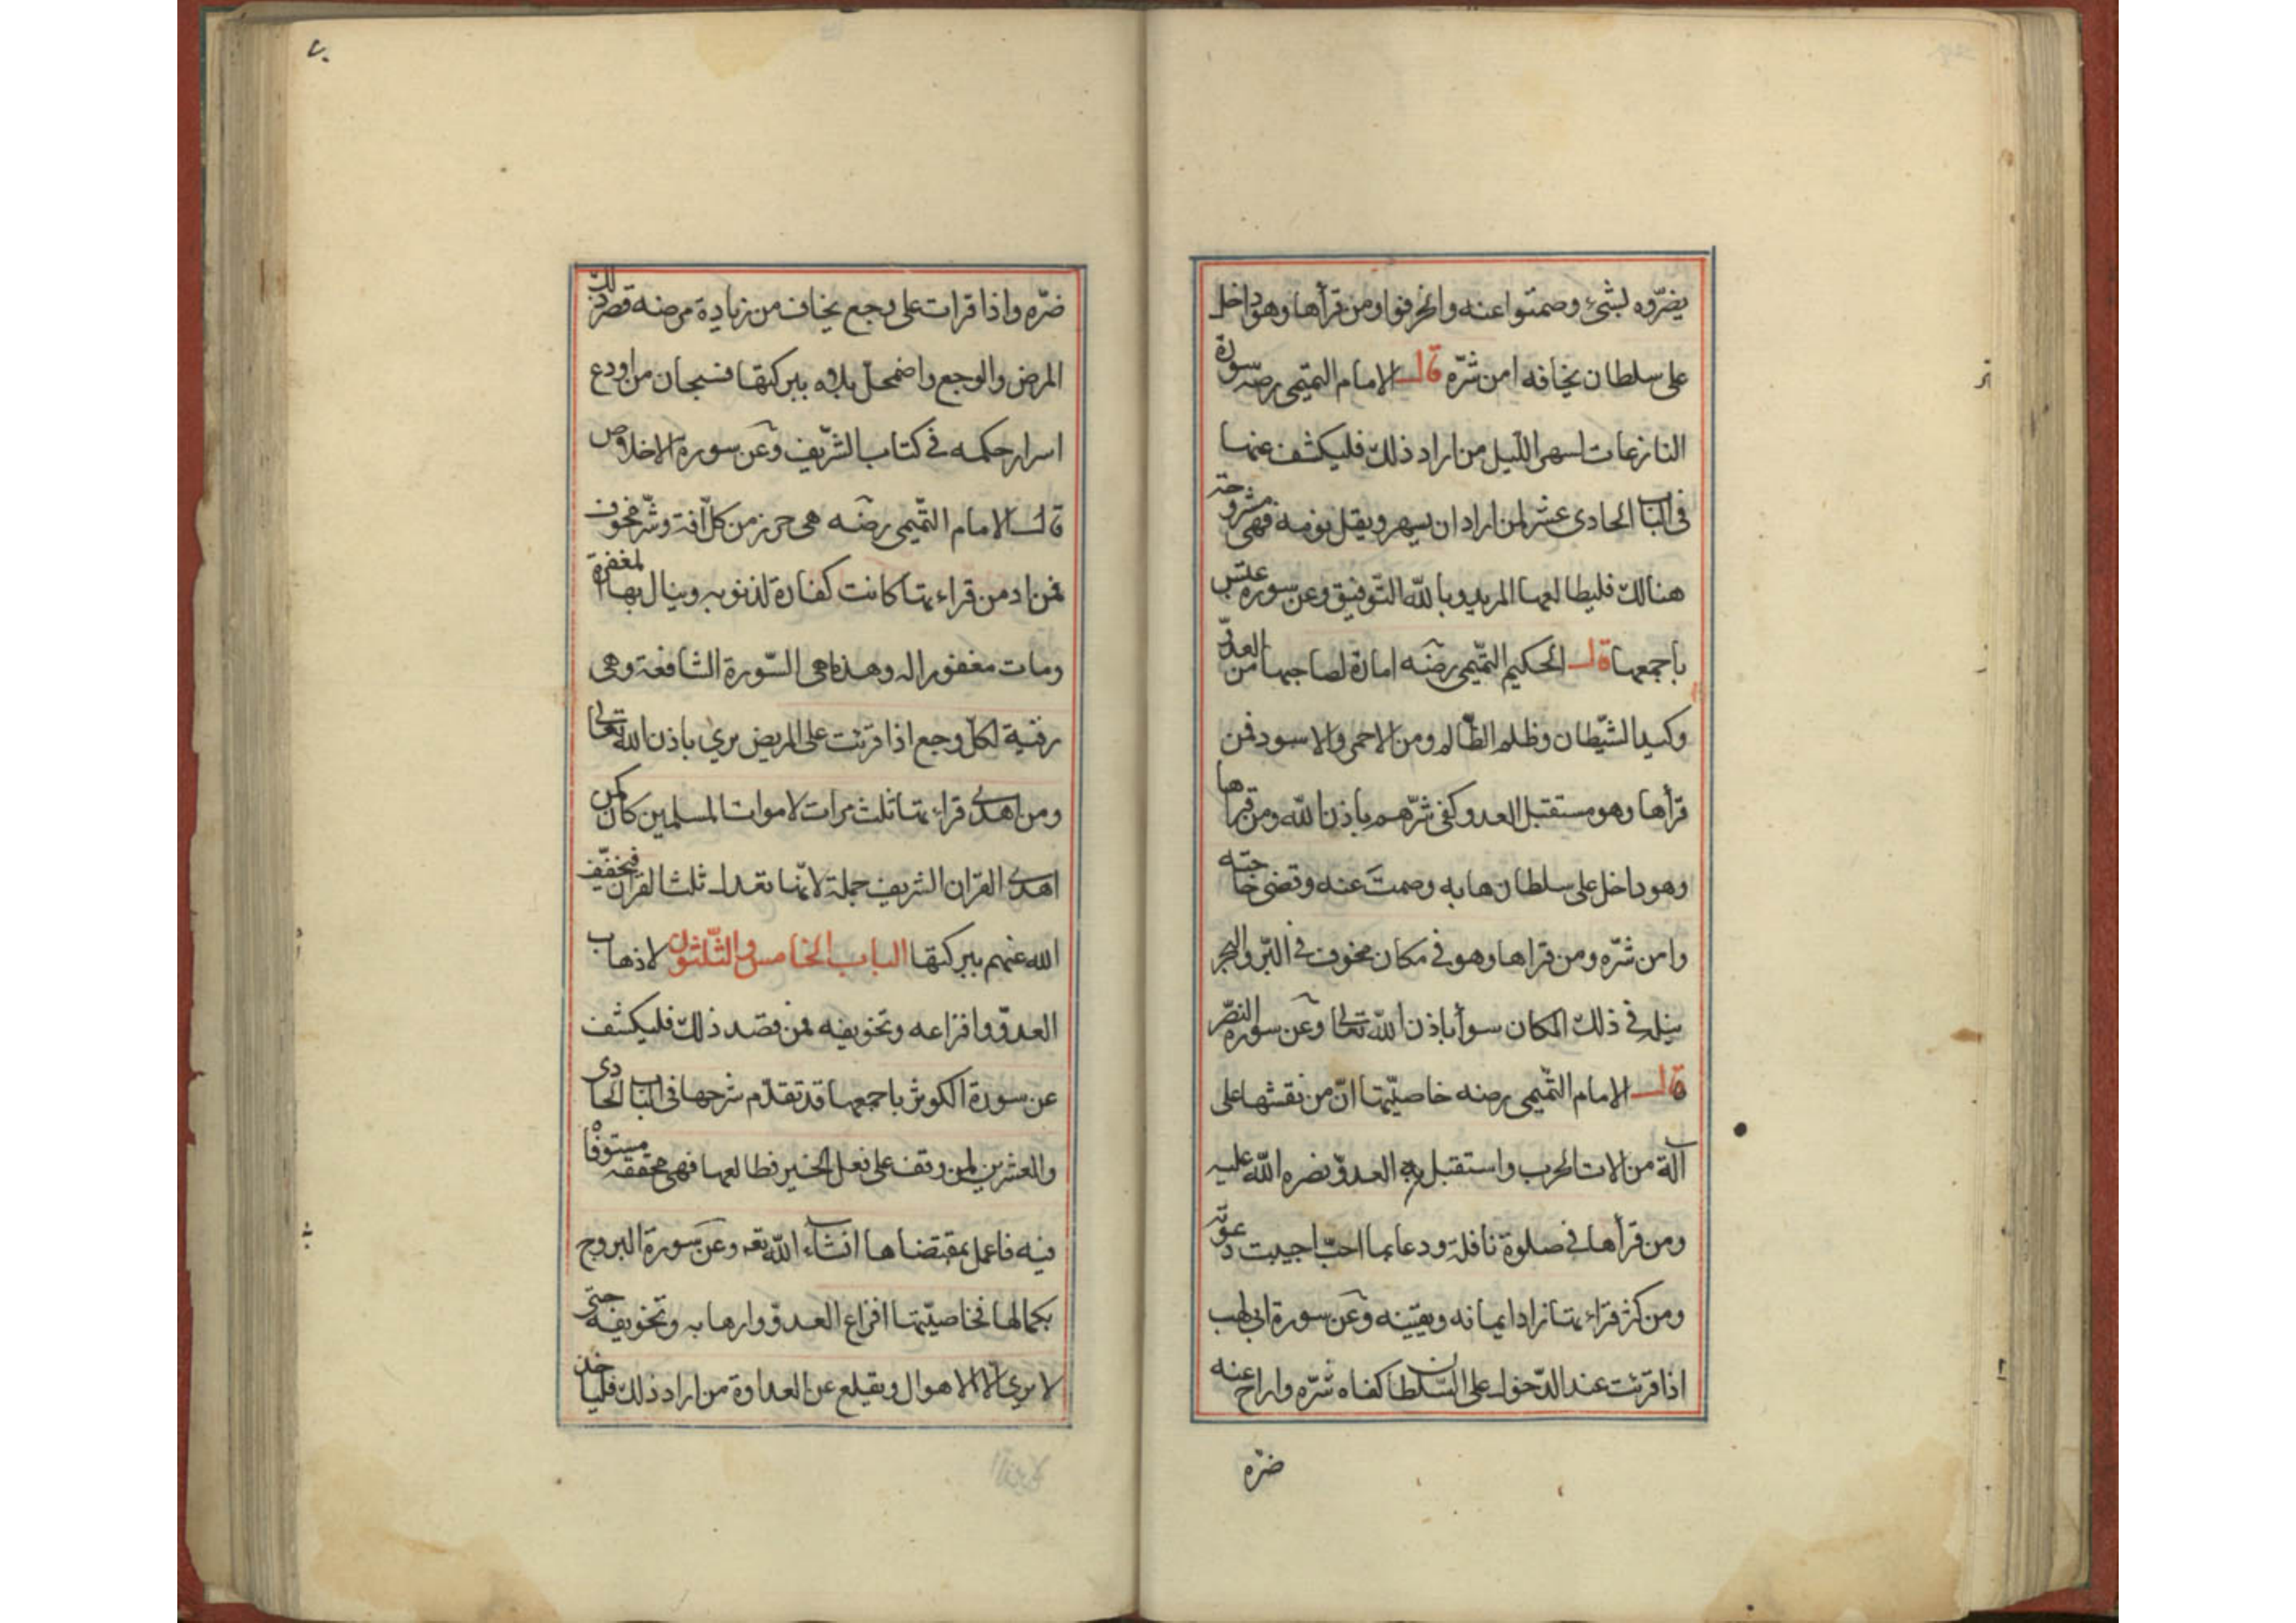 يضرّوه بشئ وصمتوا عنه وانحرفوا ومن قرأها وهو داخل
على سلطان يخافه امن شرّه قال الامام التميمى رضه سورة
النازعات لسهر اللّيل من اراد ذلك فليكشف عنها
فى الباب الحادى عشر لمن اراد ان يسهر ويقل نومه فهى مشروحة
هنالك فليطالعها المريد وبالله التّوفيق وعن سورة عبس
باجمعها قال الحكيم التّميمى رضه امارة لصاحبها من العدوّ
وكيد الشّيطان وظلم الظّالم ومن الاحمر والاسود فمن
قرأها وهو مستقبل العدو كفى شرّهم باذن الله ومن قرأها
وهو داخل على سلطان هابه وصمت عنه وقضى حاجته
وامن شرّه ومن قراها وهو فى مكان مخوف فى البّر والبحر
ينله فى ذلك المكان سوأ باذن الله تعالى وعن سورة النّصر
قال الامام التّميمى رضه خاصيّتها انّ من نقشها على
آلة من الات الحرب واستقبل به العدوّ نصره الله عليه
ومن قرأها فى صلوة نافلة ودعا بما احبّ اجيبت دعوته
ومن كرّر قراءتها زاد ايمانه ويقينه وعن سورة ابى لهب
اذا قرئت عند الدّخول على السّلطان كفاه شرّه واراح عنه
ضرّه
ضرّه واذا قرات على وجع يخاف من زيادة مرضه قصر ذلك
المرض والوجع واضمحلّ بلاوه ببركتها فسبحان من اودع
اسرار حكمه فى كتاب الشّريف وعن سورة الاخلاص
قال الامام التّميمى رضه هى حرز من كلّ افة وشّر مخوف
فمن زاد من قراءتها كانت كفارة لذنوبه وينال بها المغفرة
ومات مغفورا له وهذه هى السّورة الشافعة وهى
رقية لكلّ وجع اذا قرئت على المريض برئ باذن الله تعالى
ومن اهدى قراءتها ثلث مرات لاموات المسلمين كان كمن
اهدى القران الشريف جملة لانّها تعدل ثلث القران فيخفّف
الله عنهم ببركتها الباب الخامس والثّلثون لاذهاب
العدوّ وافزاعه وتخويفه فمن قصد ذلك فليكشف
عن سورة الكوثر باجمعها قد تقدّم شرحها فى الباب الحادى
والعشرين لمن وقف على فعل الخير فطالعها فهى محققة مستوفاة
فيه فاعمل بمقتضاها انشاء الله تعه وعن سورة البروج
بكمالها فخاصيّتها افزاع العدوّ وارهابه وتخويفه حتى
لا يرى الا الاهوال ويقلع عن العداوة من اراد ذلك فلياخذ